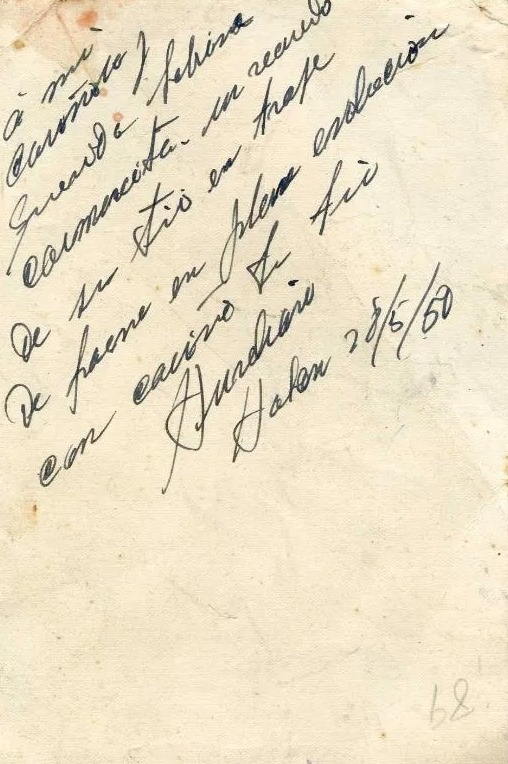 á mi
cariñosa y
querida sobrina
carmencita. un recuerdo
de su tio en traje
De faena en plena evolución
con cariño tu tio
28/5/50
68